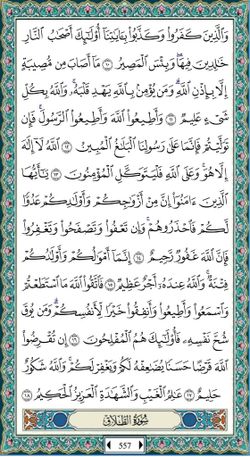 وَالَّذِينَ كَفَرُوا وَكَذَّبُوا بِآيَاتِنَا أُولَٰئِكَ أَصْحَابُ النَّارِ
خَالِدِينَ فِيهَا ۖ وَبِئْسَ الْمَصِيرُ ١٠ مَا أَصَابَ مِن مُّصِيبَةٍ
إِلَّا بِإِذْنِ اللَّهِ ۗ وَمَن يُؤْمِن بِاللَّهِ يَهْدِ قَلْبَهُ ۚ وَاللَّهُ بِكُلِّ
شَيْءٍ عَلِيمٌ ١١ وَأَطِيعُوا اللَّهَ وَأَطِيعُوا الرَّسُولَ ۚ فَإِن
تَوَلَّيْتُمْ فَإِنَّمَا عَلَىٰ رَسُولِنَا الْبَلَاغُ الْمُبِينُ ١٢ اللَّهُ لَا إِلَٰهَ
إِلَّا هُوَ ۚ وَعَلَى اللَّهِ فَلْيَتَوَكَّلِ الْمُؤْمِنُونَ ١٣ يَا أَيُّهَا
الَّذِينَ آمَنُوا إِنَّ مِنْ أَزْوَاجِكُمْ وَأَوْلَادِكُمْ عَدُوًّا
لَّكُمْ فَاحْذَرُوهُمْ ۚ وَإِن تَعْفُوا وَتَصْفَحُوا وَتَغْفِرُوا
فَإِنَّ اللَّهَ غَفُورٌ رَّحِيمٌ ١٤ إِنَّمَا أَمْوَالُكُمْ وَأَوْلَادُكُمْ
فِتْنَةٌ ۚ وَاللَّهُ عِندَهُ أَجْرٌ عَظِيمٌ ١٥ فَاتَّقُوا اللَّهَ مَا اسْتَطَعْتُمْ
وَاسْمَعُوا وَأَطِيعُوا وَأَنفِقُوا خَيْرًا لِّأَنفُسِكُمْ ۗ وَمَن يُوقَ
شُحَّ نَفْسِهِ فَأُولَٰئِكَ هُمُ الْمُفْلِحُونَ ١٦ إِن تُقْرِضُوا
اللَّهَ قَرْضًا حَسَنًا يُضَاعِفْهُ لَكُمْ وَيَغْفِرْ لَكُمْ ۚ وَاللَّهُ شَكُورٌ
حَلِيمٌ ١٧ عَالِمُ الْغَيْبِ وَالشَّهَادَةِ الْعَزِيزُ الْحَكِيمُ ١٨
سُورَةُ الطَّلَاقِ
557